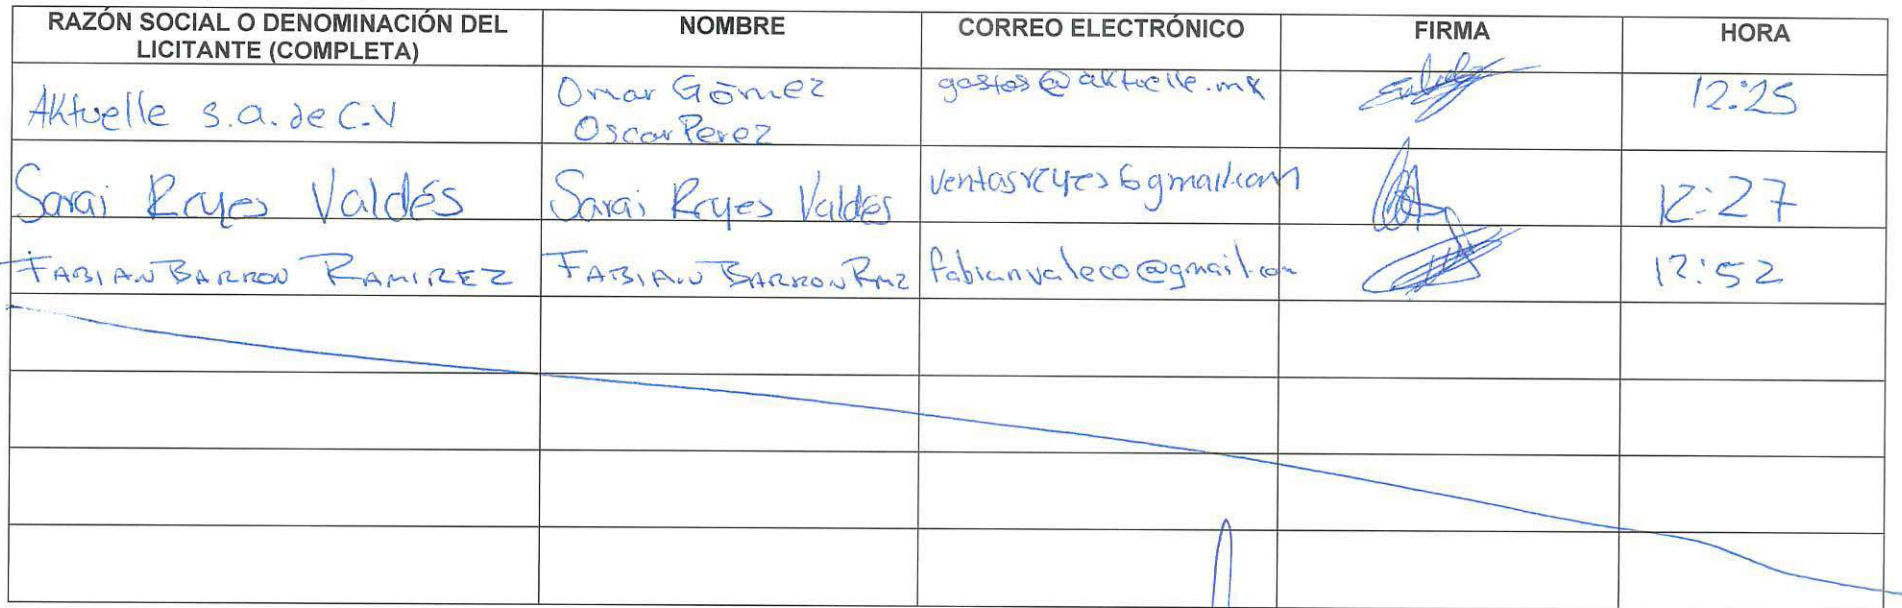 RAZÓN SOCIAL O DENOMINACIÓN DEL LICITANTE (COMPLETA) NOMBRE CORREO ELECTRÓNICO FIRMA HORA
Aktuelle s.a. de C.V Omar Gómez Oscar Perez gastos@aktuelle.mx 12:25
Sarai Reyes Valdés Sarai Reyes Valdés ventasreyes6gmail.com 12:27
FABIAN BARRON RAMIREZ FABIAN BARRON RMZ fabianvaleco@gmail.com 12:52